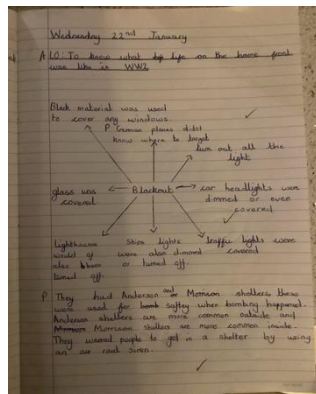 Wednesday 22nd January
A LO: To know what life on the home front
was like in WW2
Black material was used
to cover any windows.
P German planes didn't
know where to target
turn out all the
light
glass was
covered
Blackout
car headlights were
dimmed or even
covered
lighthouse
would of
also been
turned off.
Ships lights
were also dimmed
or turned off.
traffic lights were
covered
P. They had Anderson and Morrison shelters these
were used for bomb saftey when bombing happened.
Anderson shelters are more common outside and
Morrison shelters are more common inside.
They warned people to get in a shelter by using
an air raid siren.